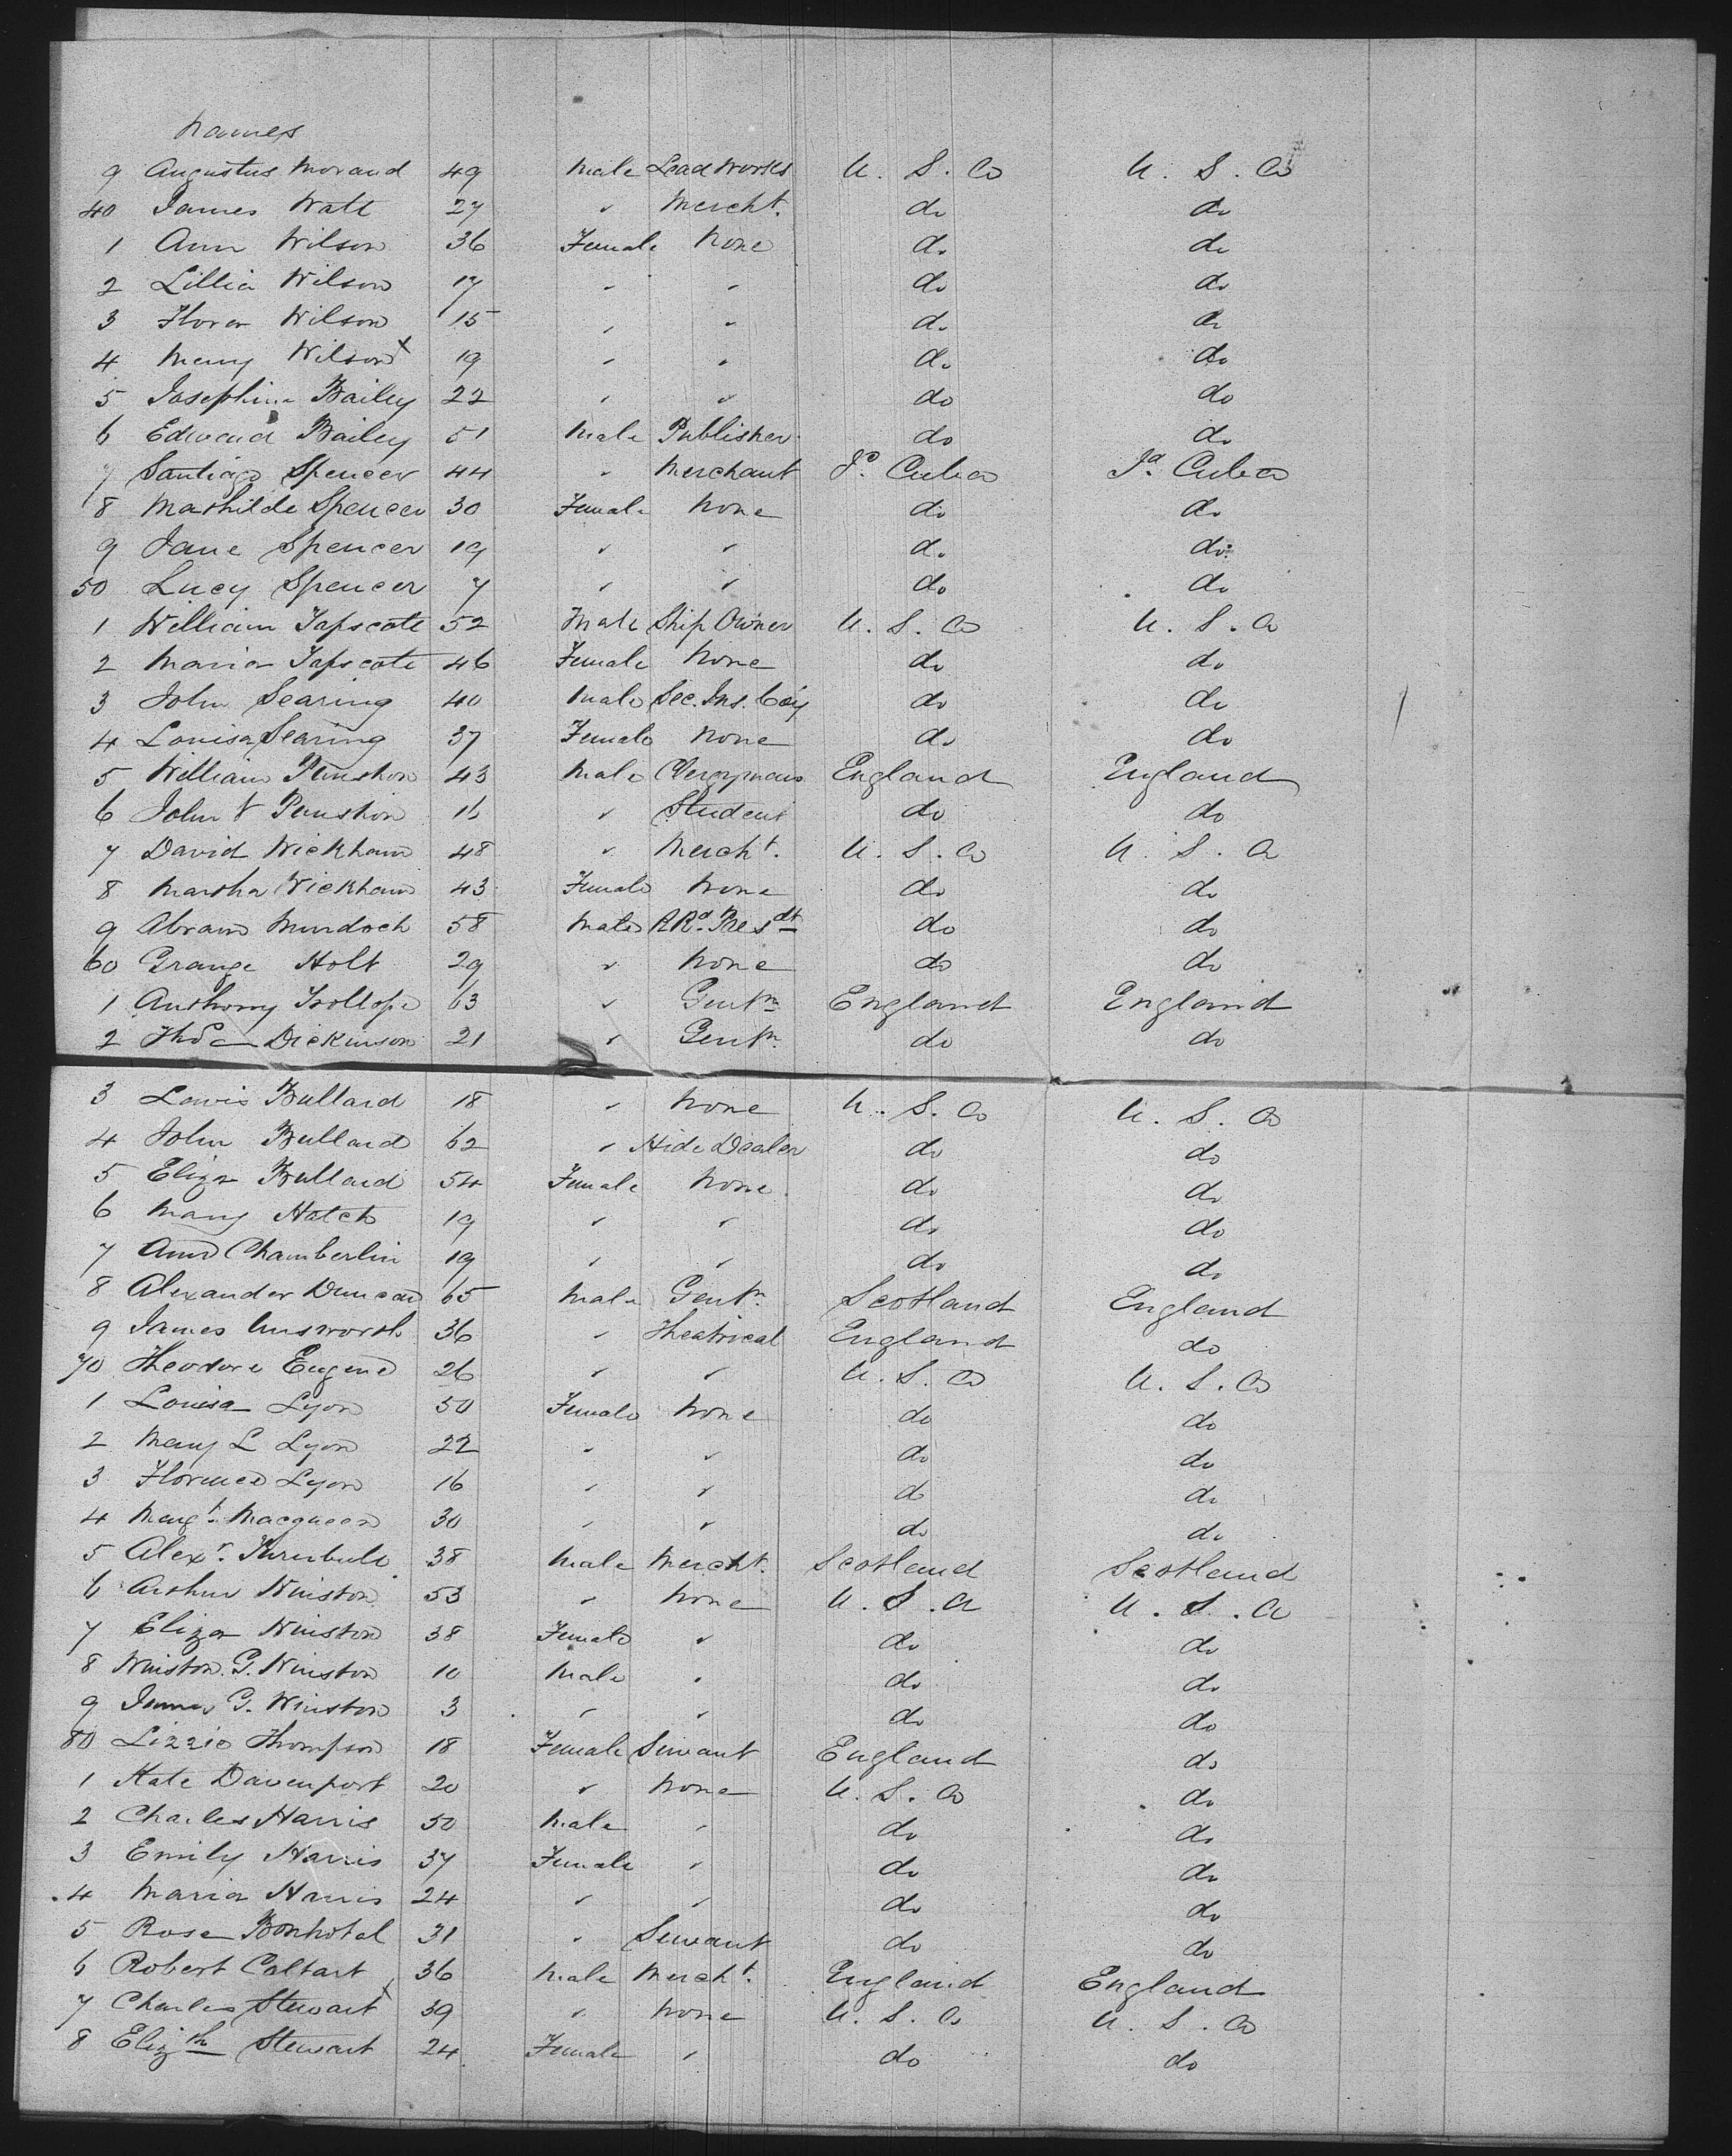 Names
9 Augustus Morand 49 Male Lead Works U. S. A
40 James Watt 27 " Mercht. do do
1 Ann Wilson 36 Female None do do
2 Lillia Wilson 17 " " do do
3 Flora Wilson 15 " " do do
4 Mary Wilson x 19 " " do do
5 Josephine Bailey 22 " " do do
6 Edward Bailey 51 Male Publisher do do
7 Santiago Spencer 44 " Merchant Cuba Cuba
8 Mathilde Spencer 30 Female None do do
9 Jane Spencer 19 " " do do
50 Lucy Spencer 7 " " do do
1 William Tapscott 52 Male Ship Owner U. S. A U. S. A
2 Maria Tapscott 46 Female None do do
3 John Searing 40 Male Sec. Ins. Coy do do
4 Louisa Searing 37 Female None do do
5 William Punshon 43 Male Clergyman England England
6 John Punshon 16 " Student do do
7 David Wickham 48 " Mercht. U. S. A U. S. A
8 Martha Wickham 43 Female None do do
9 Abram Murdoch 58 Male R Rd. Presdt do do
60 Grange Holt 29 " None do do
1 Anthony Trollope 63 " Gentn England England
2 Thos Dickinson 21 " Gentn. do do
3 Lewis Bullard 18 " None U. S. A U. S. A
4 John Bullard 62 " Hide Dealer do do
5 Eliza Bullard 54 Female None do do
6 Mary Hatch 19 " " do do
7 Anna Chamberlin 19 " " do do
8 Alexander Duncan 65 Male Gentn. Scotland England
9 James Unsworth 36 " Theatrical England do
70 Theodore Eugene 26 " " U. S. A U. S. A
1 Louisa Lyon 50 Female None do do
2 Mary L Lyon 22 " " do do
3 Florence Lyon 16 " " do do
4 Margt. Macqueen 30 " " do do
5 Alexr. Turnbull 38 Male Mercht. Scotland Scotland
6 Arthur Winston 53 " None U. S. A U. S. A
7 Eliza Winston 38 Female " do do
8 Winston G. Winston 10 Male " do do
9 James G. Winston 3 " " do do
80 Lizzie Thompson 18 Female Servant England do
1 Kate Davenport 20 " None U. S. A do
2 Charles Harris 50 Male " do do
3 Emily Harris 37 Female " do do
4 Maria Harris 24 " " do do
5 Rose Bonhotal 31 " Servant do do
6 Robert Caltart 36 Male Mercht. England England
7 Charles Stewart x 39 " None U. S. A U. S. A
8 Elizth Stewart 24 Female " do do